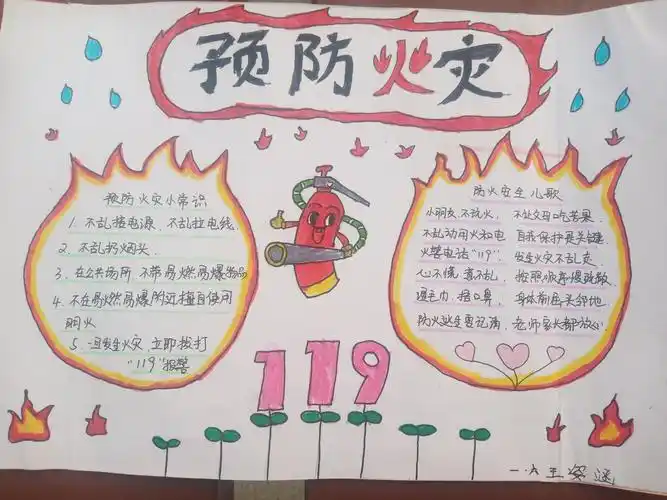 预防火灾
预防火灾小常识
1. 不乱接电源、不乱拉电线
2. 不乱扔烟头.
3. 在公共场所 不带易燃易爆物品
4. 不在易燃易爆附近擅自使用
明火
5. 发生火灾 立即拨打
"119"报警
防火安全儿歌
小朋友.不玩火, 不让父母吃苦果.
不乱动用火和电 自我保护是关键.
火警电话"119". 发生火灾不乱走.
心不慌.意不乱. 按照顺序慢疏散.
湿毛巾.捂口鼻. 身体前屈头邻地.
防火逃生要记满, 老师家长都放心.
119
一.六 王